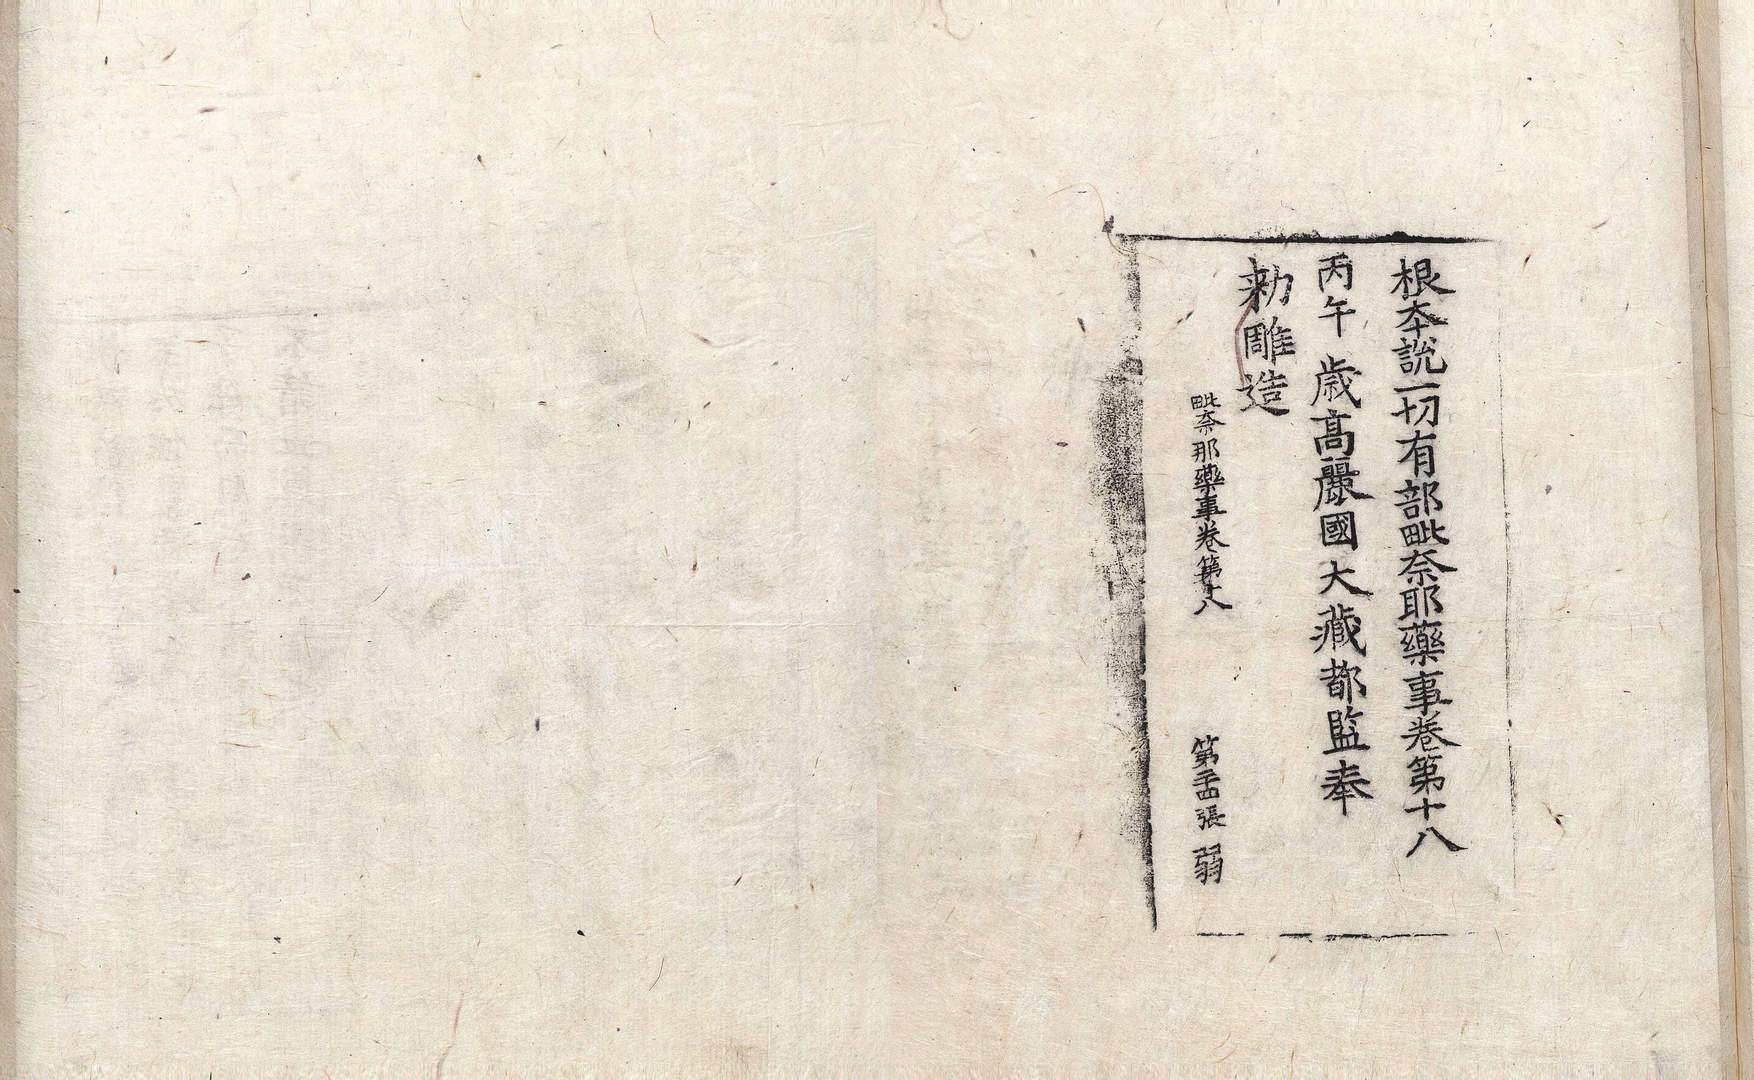 根本說一切有部毗奈耶藥事卷第十八
丙午歲高麗國大藏都監奉
勑雕造
毗奈那藥事卷第十八
第二十四張 弱